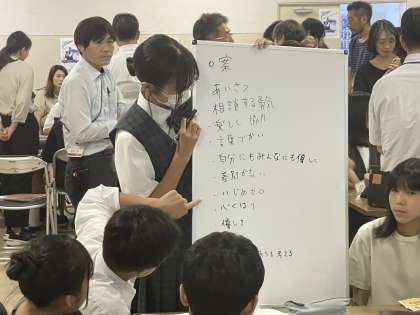 ○案
あいさつ
・相談する勇気
・楽しく 協力
・言葉づかい
・自分にもみんなにも優しく
・差別がない
・いじめゼロ
・心くばり
優しさ
考える